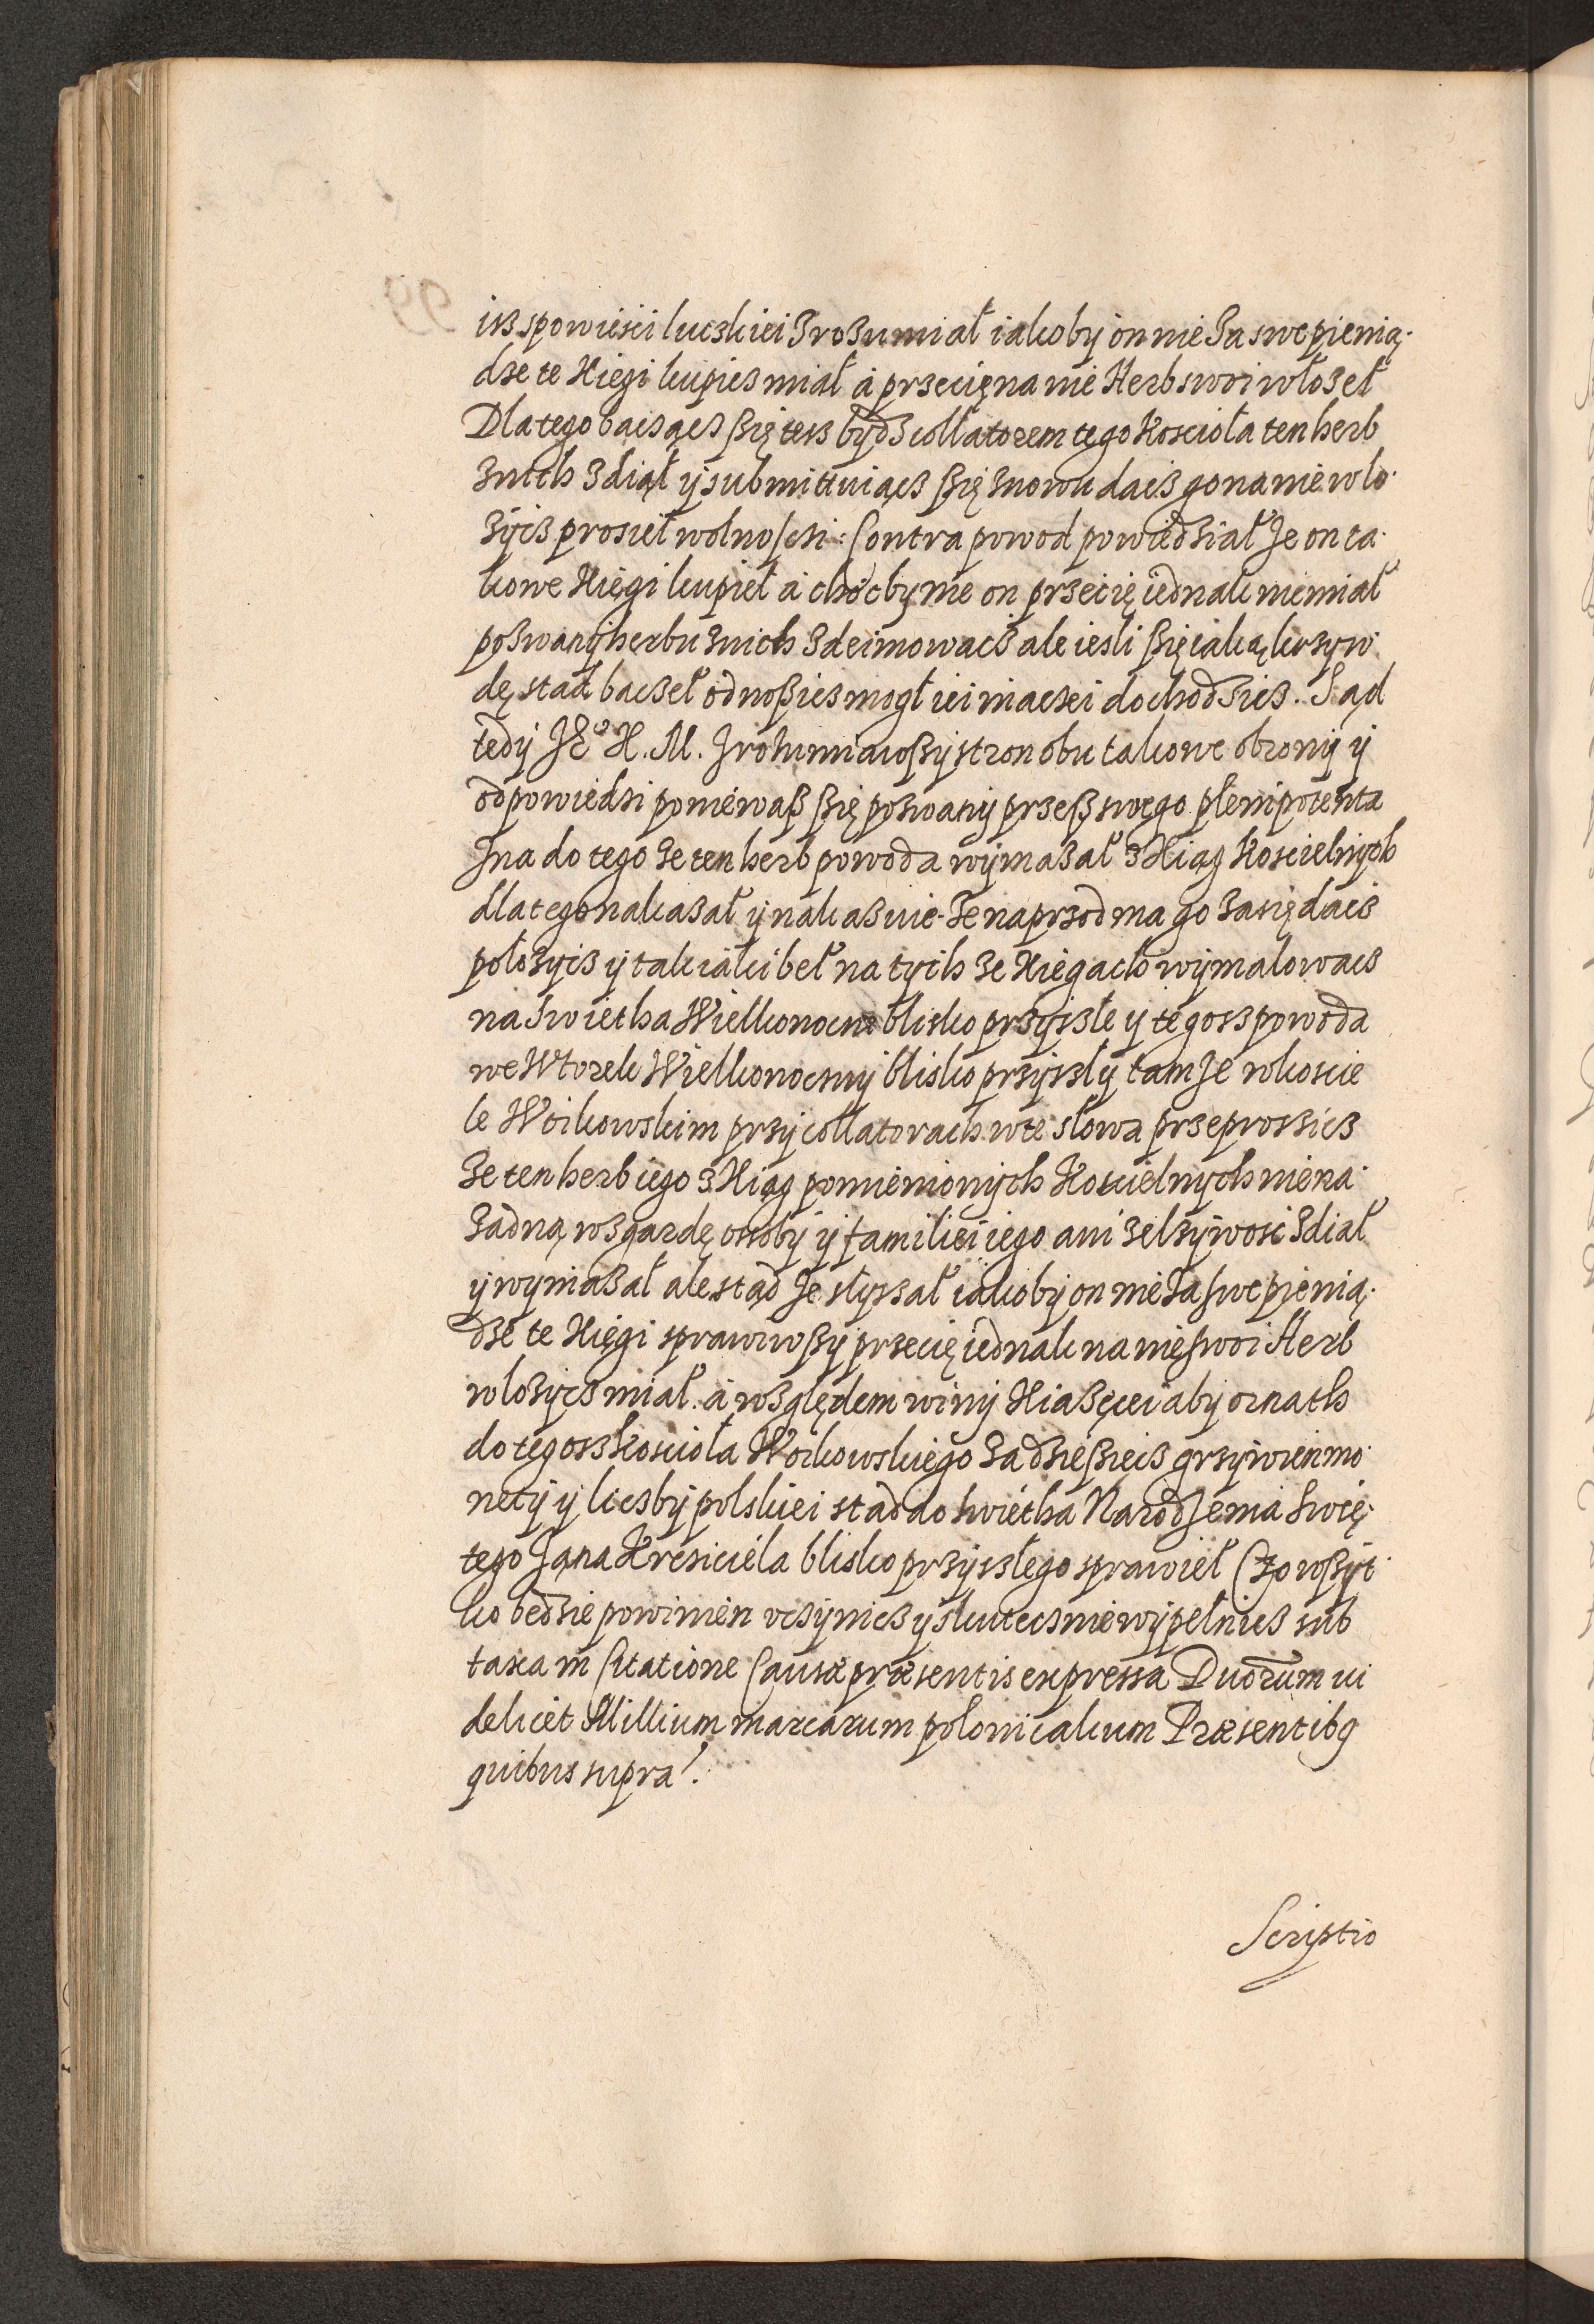 isz spowiesci luczkiei zrozumiał iakoby on nie za swe pienią-
dze te Xięgi kupicz miał á przecię na nie Herb swoi włozeł
Dlatego baczącz ßię tesz bydz collatorem tego Kosciola ten herb
znich zdiął ÿ submittuiącz ßię znowu dacz go na nie wlo-
zÿcz prosieł wolnosczi: Contra powod powiedział ze on ta-
kowe Xięgi kupieł á choczby nie on przecię iednak niemiał
pozwanÿ herbu znich zdeimowacz ale iesli ßię iaką krzyw-
dę stąd baczeł odnoßicz mogł iei inaczei dochodzicz. Sąd
tedÿ Je° X. M. zrozumiawszÿ stron obu takowe obronÿ ÿ
odpowiedzi poniewaß ßię pozwanÿ przeß swego plenipotenta
zna do tego ze ten herb powoda wÿmazał z Xiąg Koscielnÿch
dlatego nakazał ÿ nakazuie ze naprzod ma go zasię dacz
polozÿcz ÿ tak iaki beł na tÿch ze Xięgach wÿmalowacz
na swietha Wielkonocne blisko przÿszłe y tegosz powoda
we Wtorek Wielkonocznÿ blisko przÿszłÿ tamze wkoscie
le Woikowskim przÿ collatorach wte słowa przeprossicz
ze ten herb iego z Xiąg pomienionÿch Koscielnÿch nie na
zadną wzgardę osobÿ ÿ familiei iego ani zelzÿwosc zdiał
ÿ wymazał ale stąd ze słyszał iakobÿ on nie za swe pienią-
dze te Xięgi sprawiwßÿ przecię iednak na nię swoi Herb
wlozÿcz miał. á względem winÿ Xiązęcei abÿ ornath
do tegosz kosciola Woikowskiego za dzießięcz grzÿwien mo-
netÿ ÿ liczbÿ polskiei stąd do swietha Narodzenia Swię-
tego Jana Krzsiciela blisko przÿszłego sprawieł Czo wßÿt-
ko będzie powinien vczÿnicz ÿ skutecznie wÿpełnicz sub
taxa in Citatione Causæ præsentis expressa Duorum vi
delicet Millium marcarum polonicalium Præsentibq
quibus supra.
Scriptio